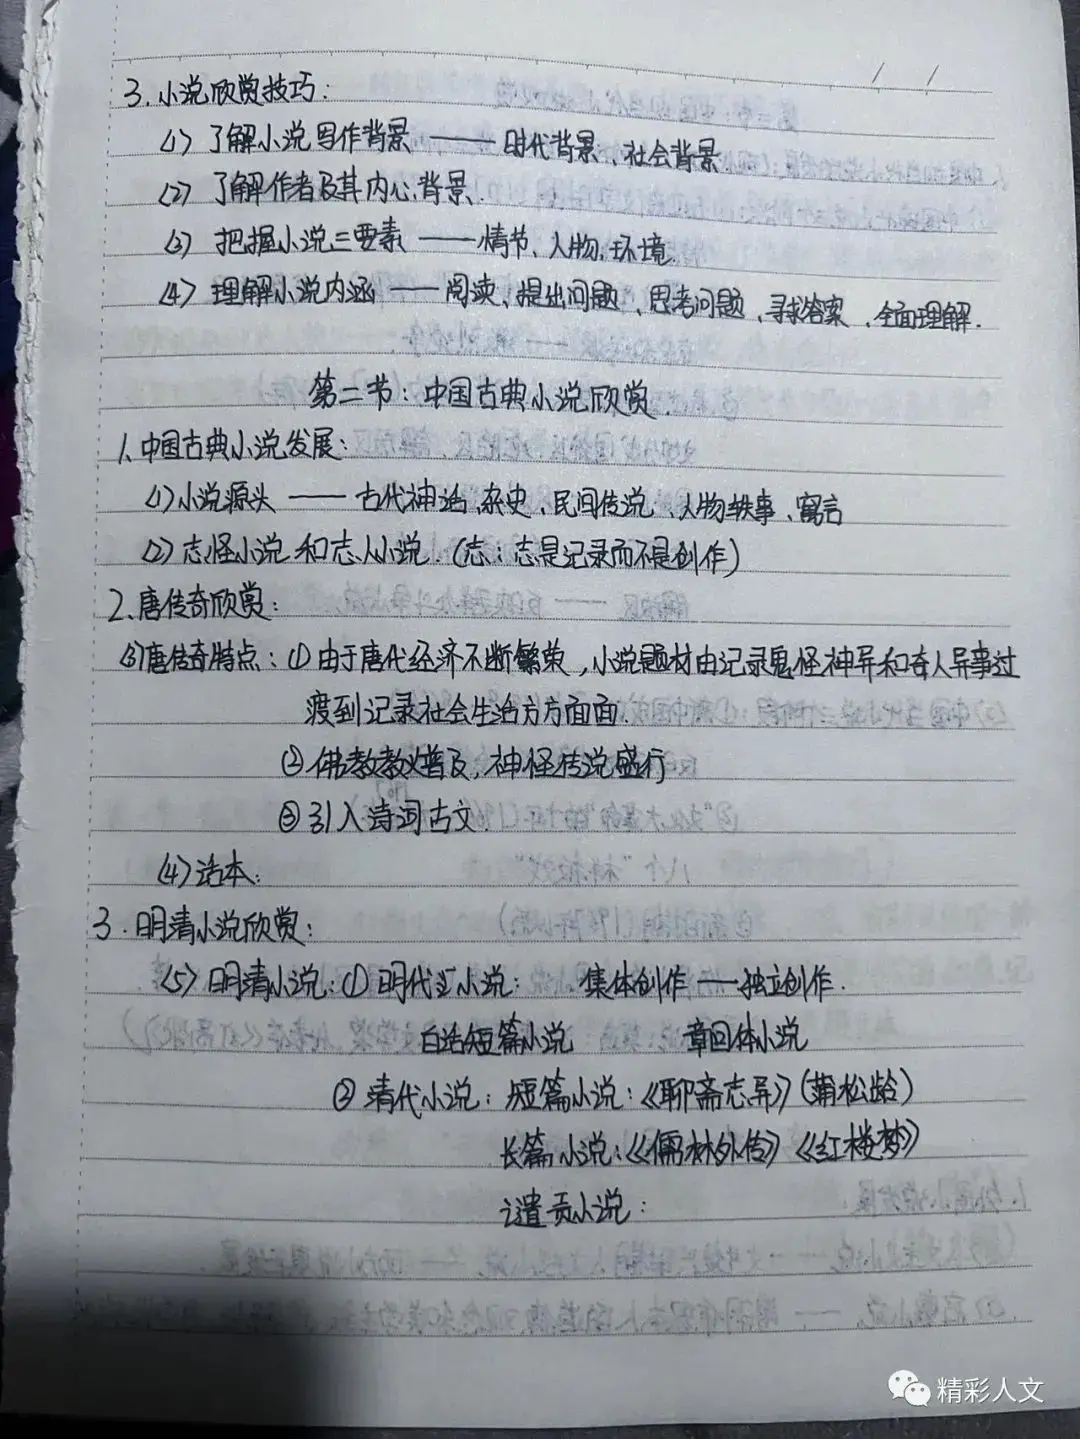 3.小说欣赏技巧：
(1)了解小说写作背景 —— 时代背景、社会背景.
(2)了解作者及其内心背景.
(3)把握小说三要素 —— 情节、人物、环境.
(4)理解小说内涵 —— 阅读、提出问题、思考问题、寻求答案、全面理解.
第二节：中国古典小说欣赏.
1.中国古典小说发展：
(1)小说源头 —— 古代神话、杂史、民间传说、人物轶事、寓言
(2)志怪小说和志人小说.（志：志是记录而不是创作）
2.唐传奇欣赏：
(3)唐传奇特点：①由于唐代经济不断繁荣，小说题材由记录鬼怪神异和奇人异事过
渡到记录社会生活方方面面.
②佛教教义普及，神怪传说盛行
③引入诗词古文.
(4)话本：
3.明清小说欣赏：
(5)明清小说：①明代小说： 集体创作 — 独立创作.
白话短篇小说 章回体小说
②清代小说：短篇小说：《聊斋志异》（蒲松龄）
长篇小说：《儒林外传》《红楼梦》
谴责小说：
精彩人文